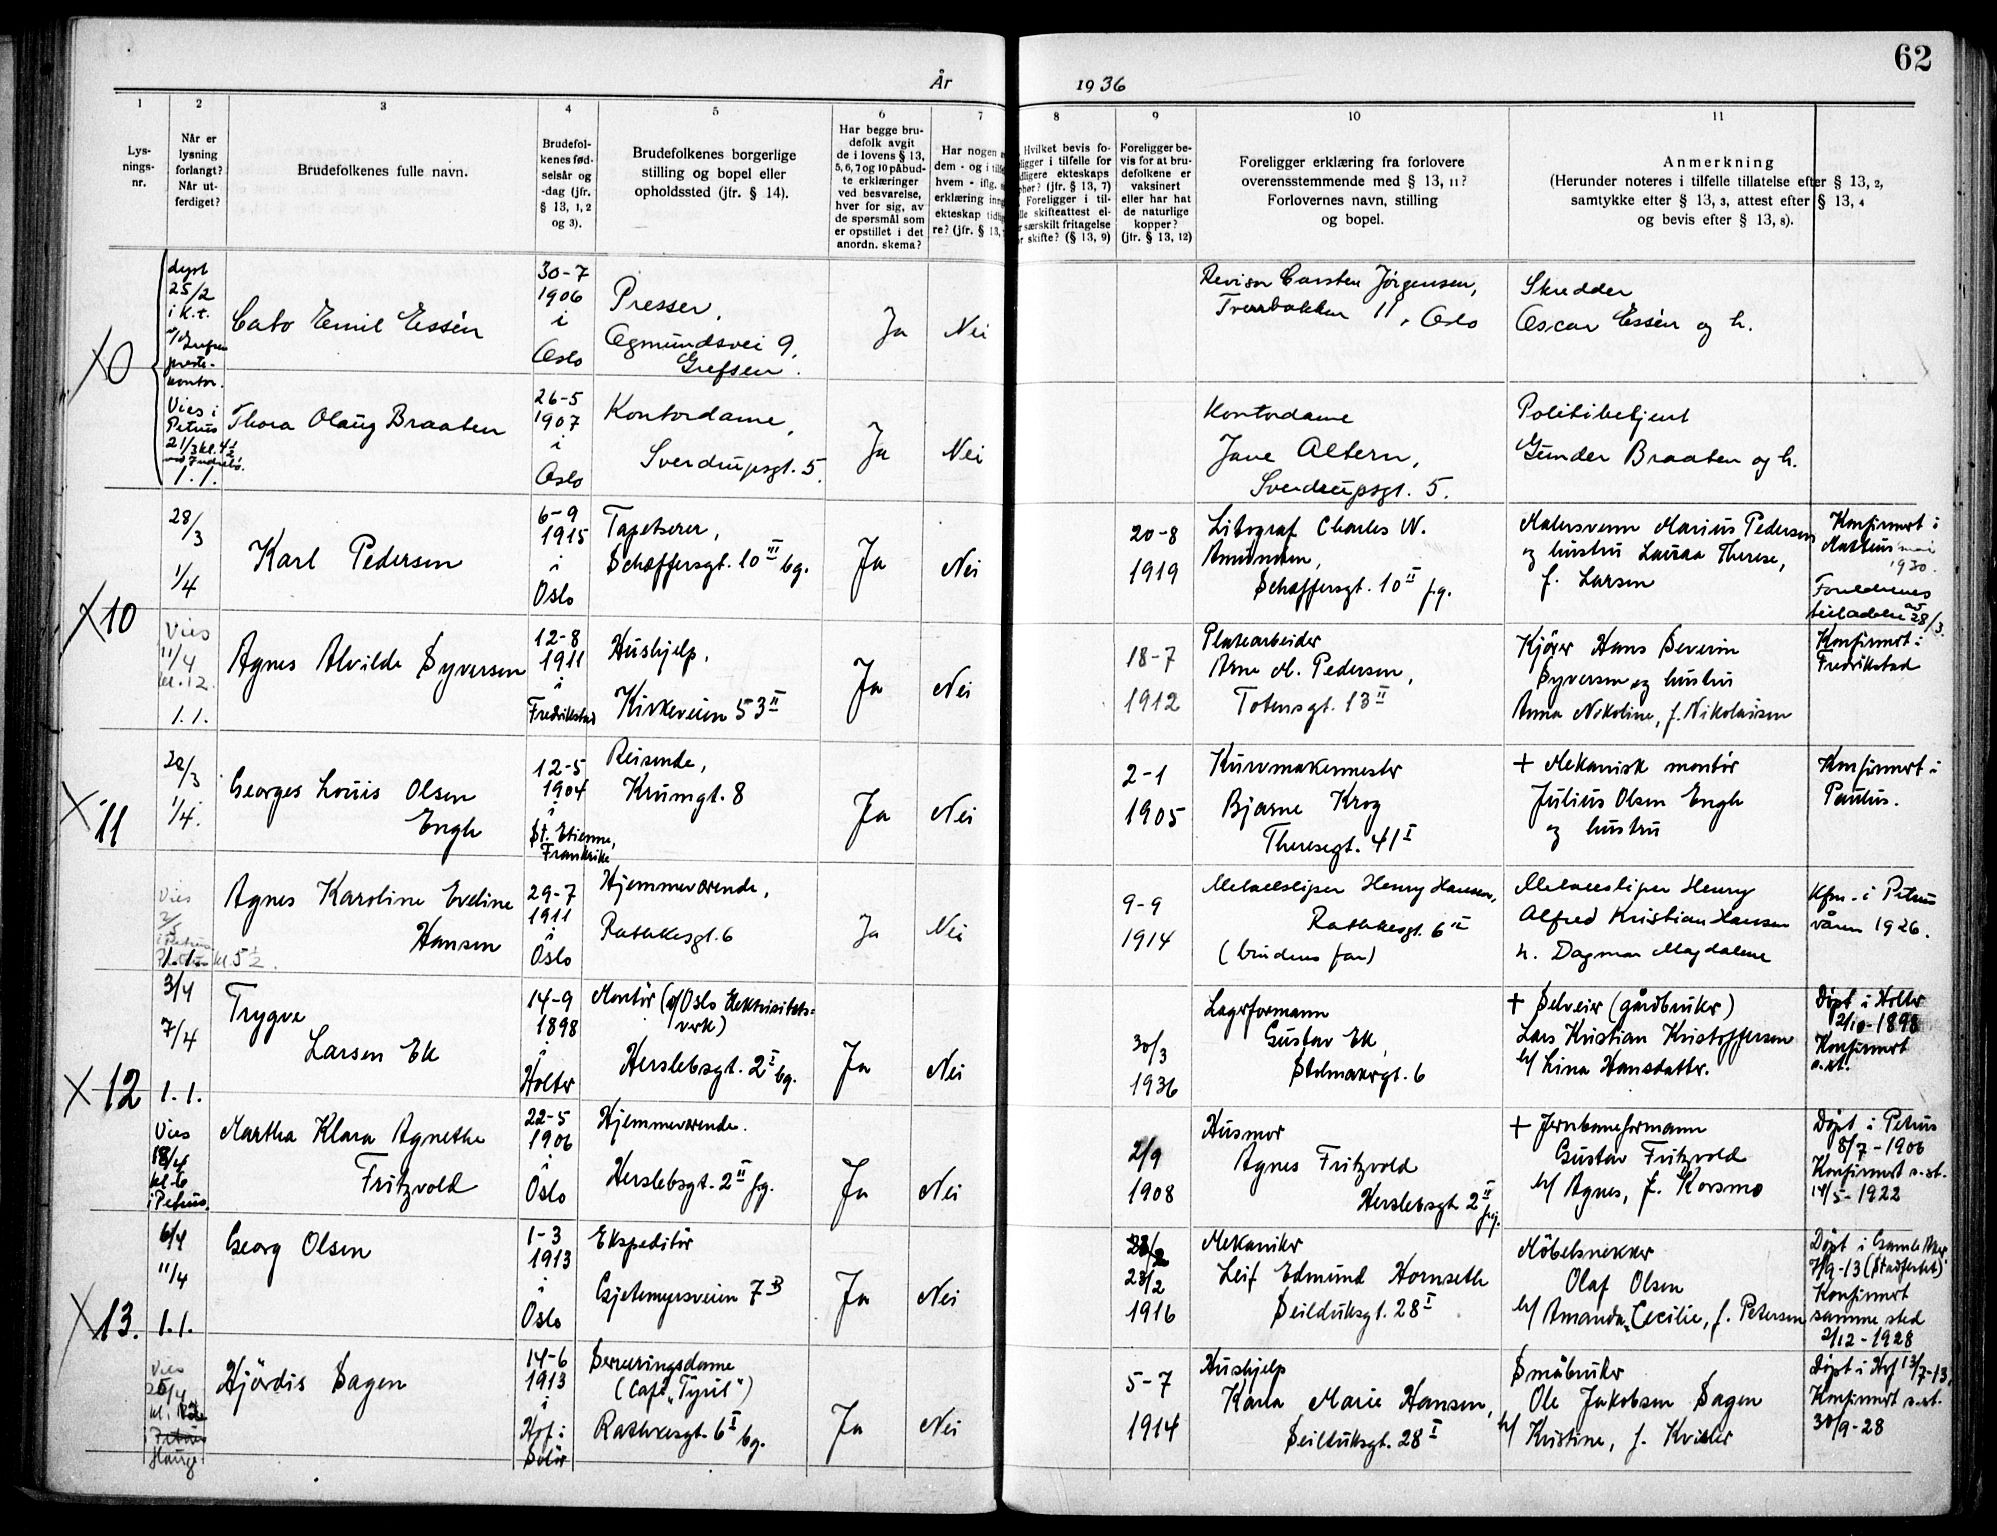 62
År 1936
1
2
3
4
5
6
7
8
9
10
11
Lys-
nings-
nr.
Når er
lysning
forlangt?
Når ut-
ferdiget?
Brudefolkenes fulle navn.
Brudefol-
kenes fød-
selsår og
-dag (jfr.
§ 13, 1, 2
og 3).
Brudefolkenes borgerlige
stilling og bopel eller
opholdssted (jfr. § 14).
Har begge bru-
defolk avgit
de i lovens § 13,
5, 6, 7 og 10 påbud-
te erklæringer
ved besvarelse,
hver for sig, av
de spørsmål som
er opstillet i det
anordn. skema?
Har nogen
dem - og i
hvem - iflg.
erklæring
ekteskap
re? (jfr. § 13,
Hvilket bevis fo-
ligger i tilfelle for
ligere ekteskaps
? (jfr. § 13, 7)
Foreligger i til-
skifteattest el-
særskilt fritagelse
skifte? (§ 13, 9)
Foreligger be-
vis for at bru-
defolkene er
vaksinert
eller har hat
de naturlige
kopper?
(jfr. § 13, 12)
Foreligger erklæring fra forlovere
overensstemmende med § 13, 11?
Forlovernes navn, stilling
og bopel.
Anmerkning
(Herunder noteres i tilfelle tillatelse efter § 13, 2,
samtykke efter § 13, 3, attest efter § 13, 4
og bevis efter § 13, 8).
X 0
lyst
25/2
i K.t.
preste-
kontor.
Cato Emil Essén
30-7
1906
i
Oslo
Presser,
Ogmundsvei 9,
Grefsen.
Ja
Nei
Revisor Carsten Jørgensen,
Tverrbakken 11, Oslo
Skredder
Oscar Essén og h.
Vies i
Petrus
21/3 kl. 4½
1.1.
Thora Olaug Braaten
26-5
1907
i
Oslo
Kontordame,
Sverdrupsgt. 5
Ja
Nei
Kontordame
Jane Altern,
Sverdrupsgt. 5.
Politibetjent
Gunder Braaten og h.
X 10
28/3
1/4
Karl Pedersen
6-9
1915
i
Oslo
Tapetserer,
Schæffersgt. 10 III bg.
Ja
Nei
20-8
1919
Litograf Charles W.
Amundsen,
Schæffersgt. 10 II fg.
Malersvenn Marius Pedersen
og hustru Laura Therese,
f. Larsen
Konfirmert i
Matteus mai
1930.
Foreldrenes
tilladelse av 28/3.
Vies
11/4
kl. 12
1.1.
Agnes Alvilde Syversen
12-8
1911
i
Fredrikstad
Hushjelp,
Kirkeveien 53 II
Ja
Nei
18-7
1912
Platearbeider
Arne M. Pedersen,
Totensgt. 13 II
Kjører Hans Severin
Syversen og hustru
Anna Nikoline, f. Nikolaisen
Konfirmert i
Fredrikstad
X 11
28/3
1/4.
Georges Louis Olsen
Engh
12-5
1904
i
St. Etienne,
Frankrike
Reisende,
Krumgt. 8
Ja
Nei
2-1
1905
Kurvmakermester
Bjarne Krog
Theresegt. 41 I
+ Mekanisk montör
Julius Olsen Engh
og hustru
Konfirmert i
Paulus.
Vies
2/5
i Petrus
1.1. kl. 5½.
Agnes Karoline Eveline
Hansen
29-7
1911
i
Oslo
Hjemmeværende,
Rathkesgt. 6
Ja
Nei
9-9
1914
Metallsliper Henry Hansen,
Rathkesgt. 6 II
(brudens far)
Metallsliper Henry
Alfred Kristian Hansen
h. Dagmar Magdalene
Kfm. i Petrus
våren 1926.
X 12
3/4
7/4
1.1.
Trygve
Larsen Ek
14-9
1898
i
Holter
Montör (v/Oslo Elektrisitets-
verk)
Herslebsgt. 2 I bg.
Ja
Nei
30/3
1936
Lagerformann
Gustav Ek,
Stolmakergt. 6
+ Selveier (gårdbruker)
Lars Kristian Kristoffersen
h/ Lina Hansdatter.
Döpt i Holter
2/10-1898
Konfirmert
s.st.
Vies
18/4
kl. 6
i Petrus.
Martha Klara Agnethe
Fritzvold
22-5
1906
i
Oslo
Hjemmeværende.
Herslebsgt. 2 II fg.
Ja
Nei
2/9
1908
Husmor
Agnes Fritzvold
Herslebsgt 2 II fg.
+ Jernbaneformann
Gustav Fritzvold
h/ Agnes, f. Korsmo
Döpt i Petrus
8/7-1906
Konfirmert s.st.
14/5-1922
X 13.
6/4
11/4
1.1.
Georg Olsen
1-3
1913
i
Oslo
Ekspeditör
Gjetemyrsveien 7 B
Ja
Nei
28/2
23/2
1916
Mekaniker
Leif Edmund Hornseth
Seilduksgt. 28 I
Möbelsnekker
Olaf Olsen
h/ Amanda Cecilie, f. Petersen
Döpt i Gamle Aker
7/9-13 (Stadfestet)
Konfirmert
samme sted
2/12-1928
Vies
25/4
Petrus
Hauge
Hjördis Sagen
14-6
1913
i
Hof i
Solör
Serveringsdame
(Café „Tyril”)
Rathkesgt. 6 I bg.
Ja
Nei
5-7
1914
Hushjelp
Karla Marie Hansen,
Seilduksgt. 28 I
Småbruker
Ole Jakobsen Sagen
h/ Kristine, f. Kvisler
Döpt i Hof 13/7-13,
Konfirmert s.st.
30/9-28